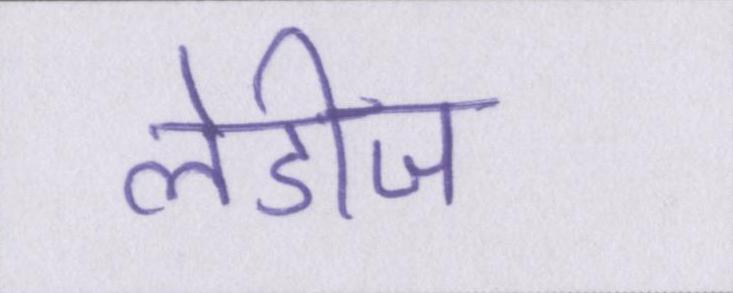 लेडीज